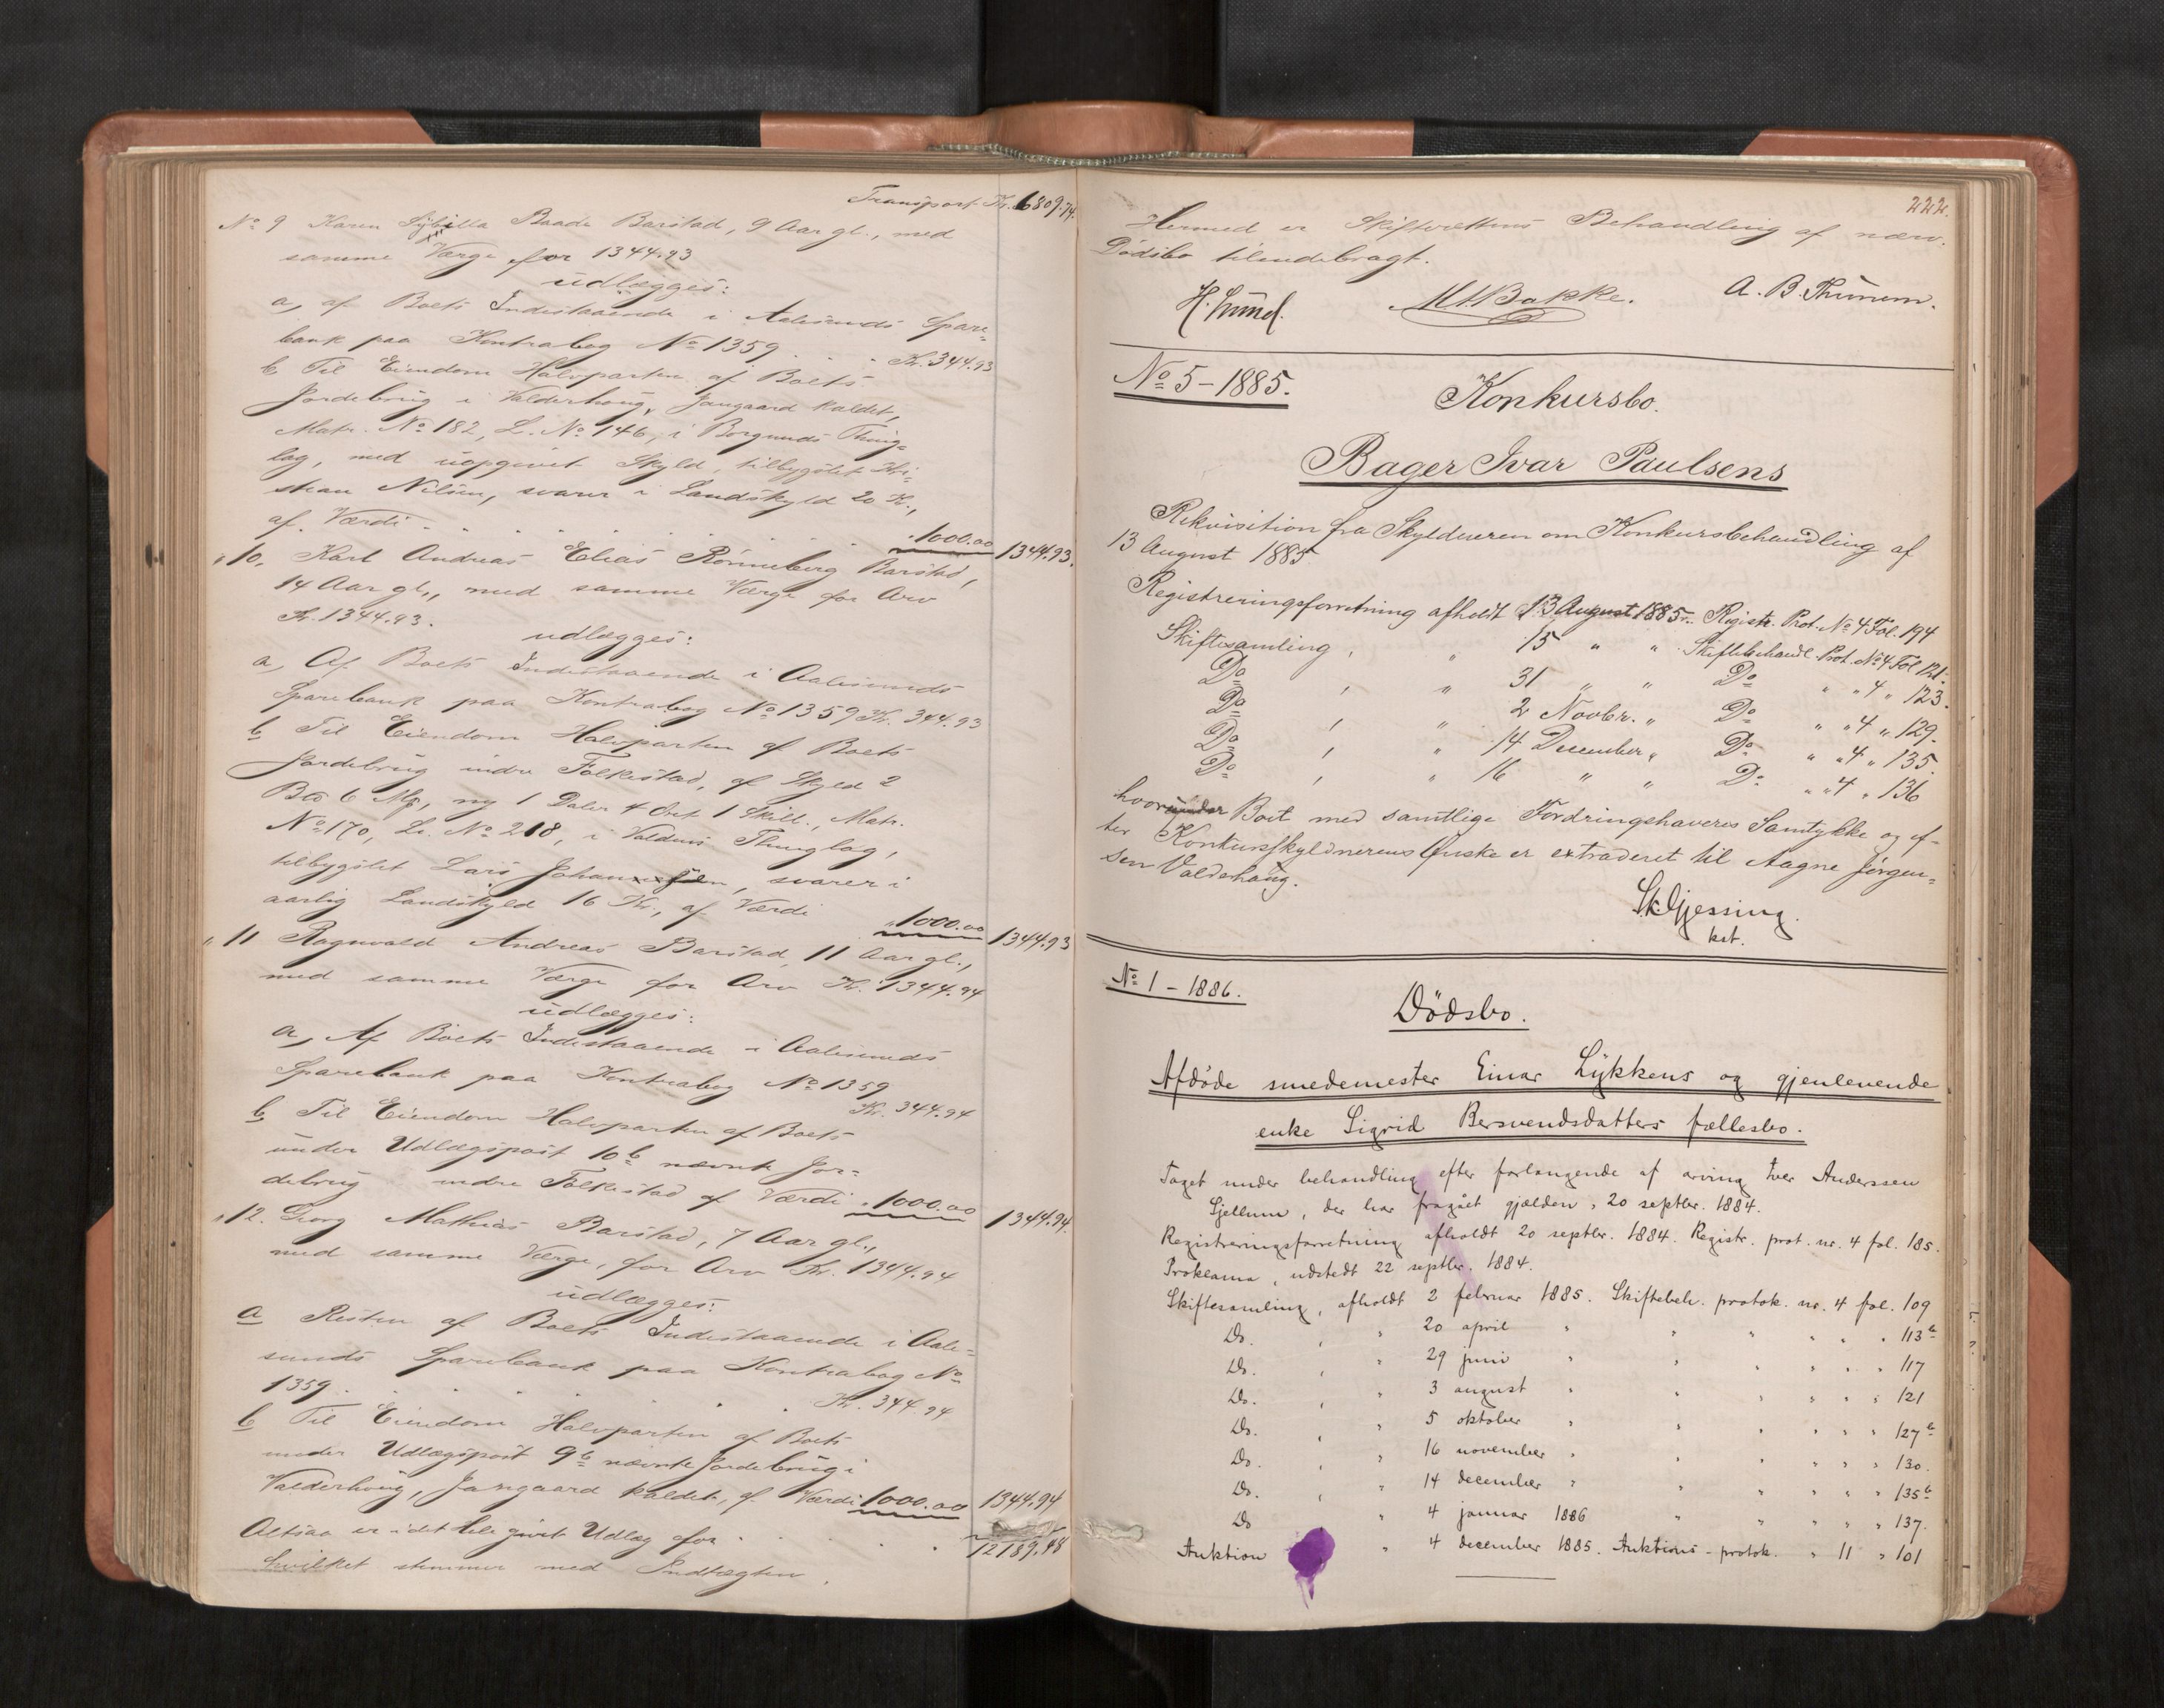 Transport Kr. 6809.74.
No 9 Karen Sybilla Baade Barstad, 9 Aar gl., med
samme Værge for 1344.93
udlægges:
a, af Boets Indestaaende i Aalesunds Spare-
bank paa Kontrabog No 1359 . . . Kr. 344.93
b Til Eiendom Halvparten af Boets
Jordebrug i Valderhoug, Jangaard kaldet,
Matr. No 182, L. No 146, i Borgunds Thing-
lag, med uopgivet Skyld, tilbygslet Kri-
stian Nilsen, svarer i Landskyld 20 Kr.,
af Værdi . . . . . . . " 1000.00 1344.93.
" 10. Karl Andreas Elias Rønneberg Barstad,
14 Aar gl., med samme Værge for Arv
Kr. 1344.93.
udlægges:
a, Af Boets Indestaaende i Aalesunds
Sparebank paa Kontrabog No 1359 Kr. 344.93
b Til Eiendom Halvparten af Boets
Jordebrug indre Folkestad, af Skyld 2
6 ny 1 Daler 4 Ort 1 Skill., Matr.
No 170, L. No 218, i Voldens Thinglag,
tilbygslet Lars Johannesen, svarer i
aarlig Landskyld 16 Kr., af Værdi " 1000.00 1344.93
" 11 Ragnvald Andreas Barstad, 11 Aar gl.,
med samme Værge for Arv Kr. 1344.94
udlægges:
a, Af Boets Indestaaende i Aalesunds
Sparebank paa Kontrabog No 1359
Kr. 344.94
b, Til Eiendom Halvparten af Boets
under Udlægspost 10 b nævnte Jor-
debrug indre Folkestad af Værdi " 1000.00 1344.94.
" 12. Georg Mathias Barstad, 7 Aar gl.,
med samme Værge, for Arv Kr. 1344.94
udlægges:
a Resten af Boets Indestaaende i Aale-
sunds Sparebank paa Kontrabog No
1359 . . . . . Kr. 344.94
b Til Eiendom Halvparten af Boets
under Udlægspost 9 b nævnte Jordebrug i
Valderhoug, Jangaard kaldet, af Værdi 1000.00 1344.94
Altsaa er i det hele givet Udlæg for . . . . 12189.48
hvilket stemmer med Indtægten.
222.
Hermed er Skifterettens Behandling af nærv.
Dødsbo tilendebragt.
H. Lund. M. A. Bakke. A. B. Thunem.
No 5 - 1885.
Konkursbo.
Bager Ivar Paulsens
Rekvisition fra Skyldneren om Konkursbehandling af
13 August 1885
Registreringsforretning afholdt 13 August 1885. Registr. Prot. No 4 Fol. 194
Skiftesamling , " 15 " " Skiftebehandl. Prot. No 4 Fol 121.
Do , " 31 " " Do " " 4 " 123.
Do , " 2 Novbr. " Do " " 4 " 129.
Do , " 14 December " Do " " 4 " 135.
Do , " 16 " " Do " " 4 " 136
hvorunder Boet med samtlige Fordringshaveres Samtykke og ef-
ter Konkursskyldnerens Ønske er extraderet til Aagne Jørgen-
sen Valdehaug.
Sk Gjessing.
kst.
No 1 - 1886.
Dödsbo.
Afdöde smedemester Einar Lykkens og gjenlevende
enke Sigrid Bersvendsdatters fællesbo.
Taget under behandling efter forlangende af arving Iver Anderssen
Gjellum, der har fragået gjælden, 20 septbr. 1884.
Registreringsforretning afholdt 20 septbr. 1884. Registr. prot. nr. 4 fol. 185.
Proklama, udstedt 22 septbr. 1884.
Skiftesamling, afholdt 2 februar 1885. Skiftebeh. protok. nr. 4 fol. 109
Do. , " 20 april " " " " " " 113 b
Do. , " 29 juni " " " " " " 117
Do. , " 3 august " " " " " " 121
Do. , " 5 oktober " " " " " " 127 b
Do. , " 16 november " " " " " " 130.
Do. , " 14 december " " " " " " 135 b
Do " 4 januar 1886 " " " " " 137.
Auktion " 4 december 1885. Auktions-protok. " 11 " 101